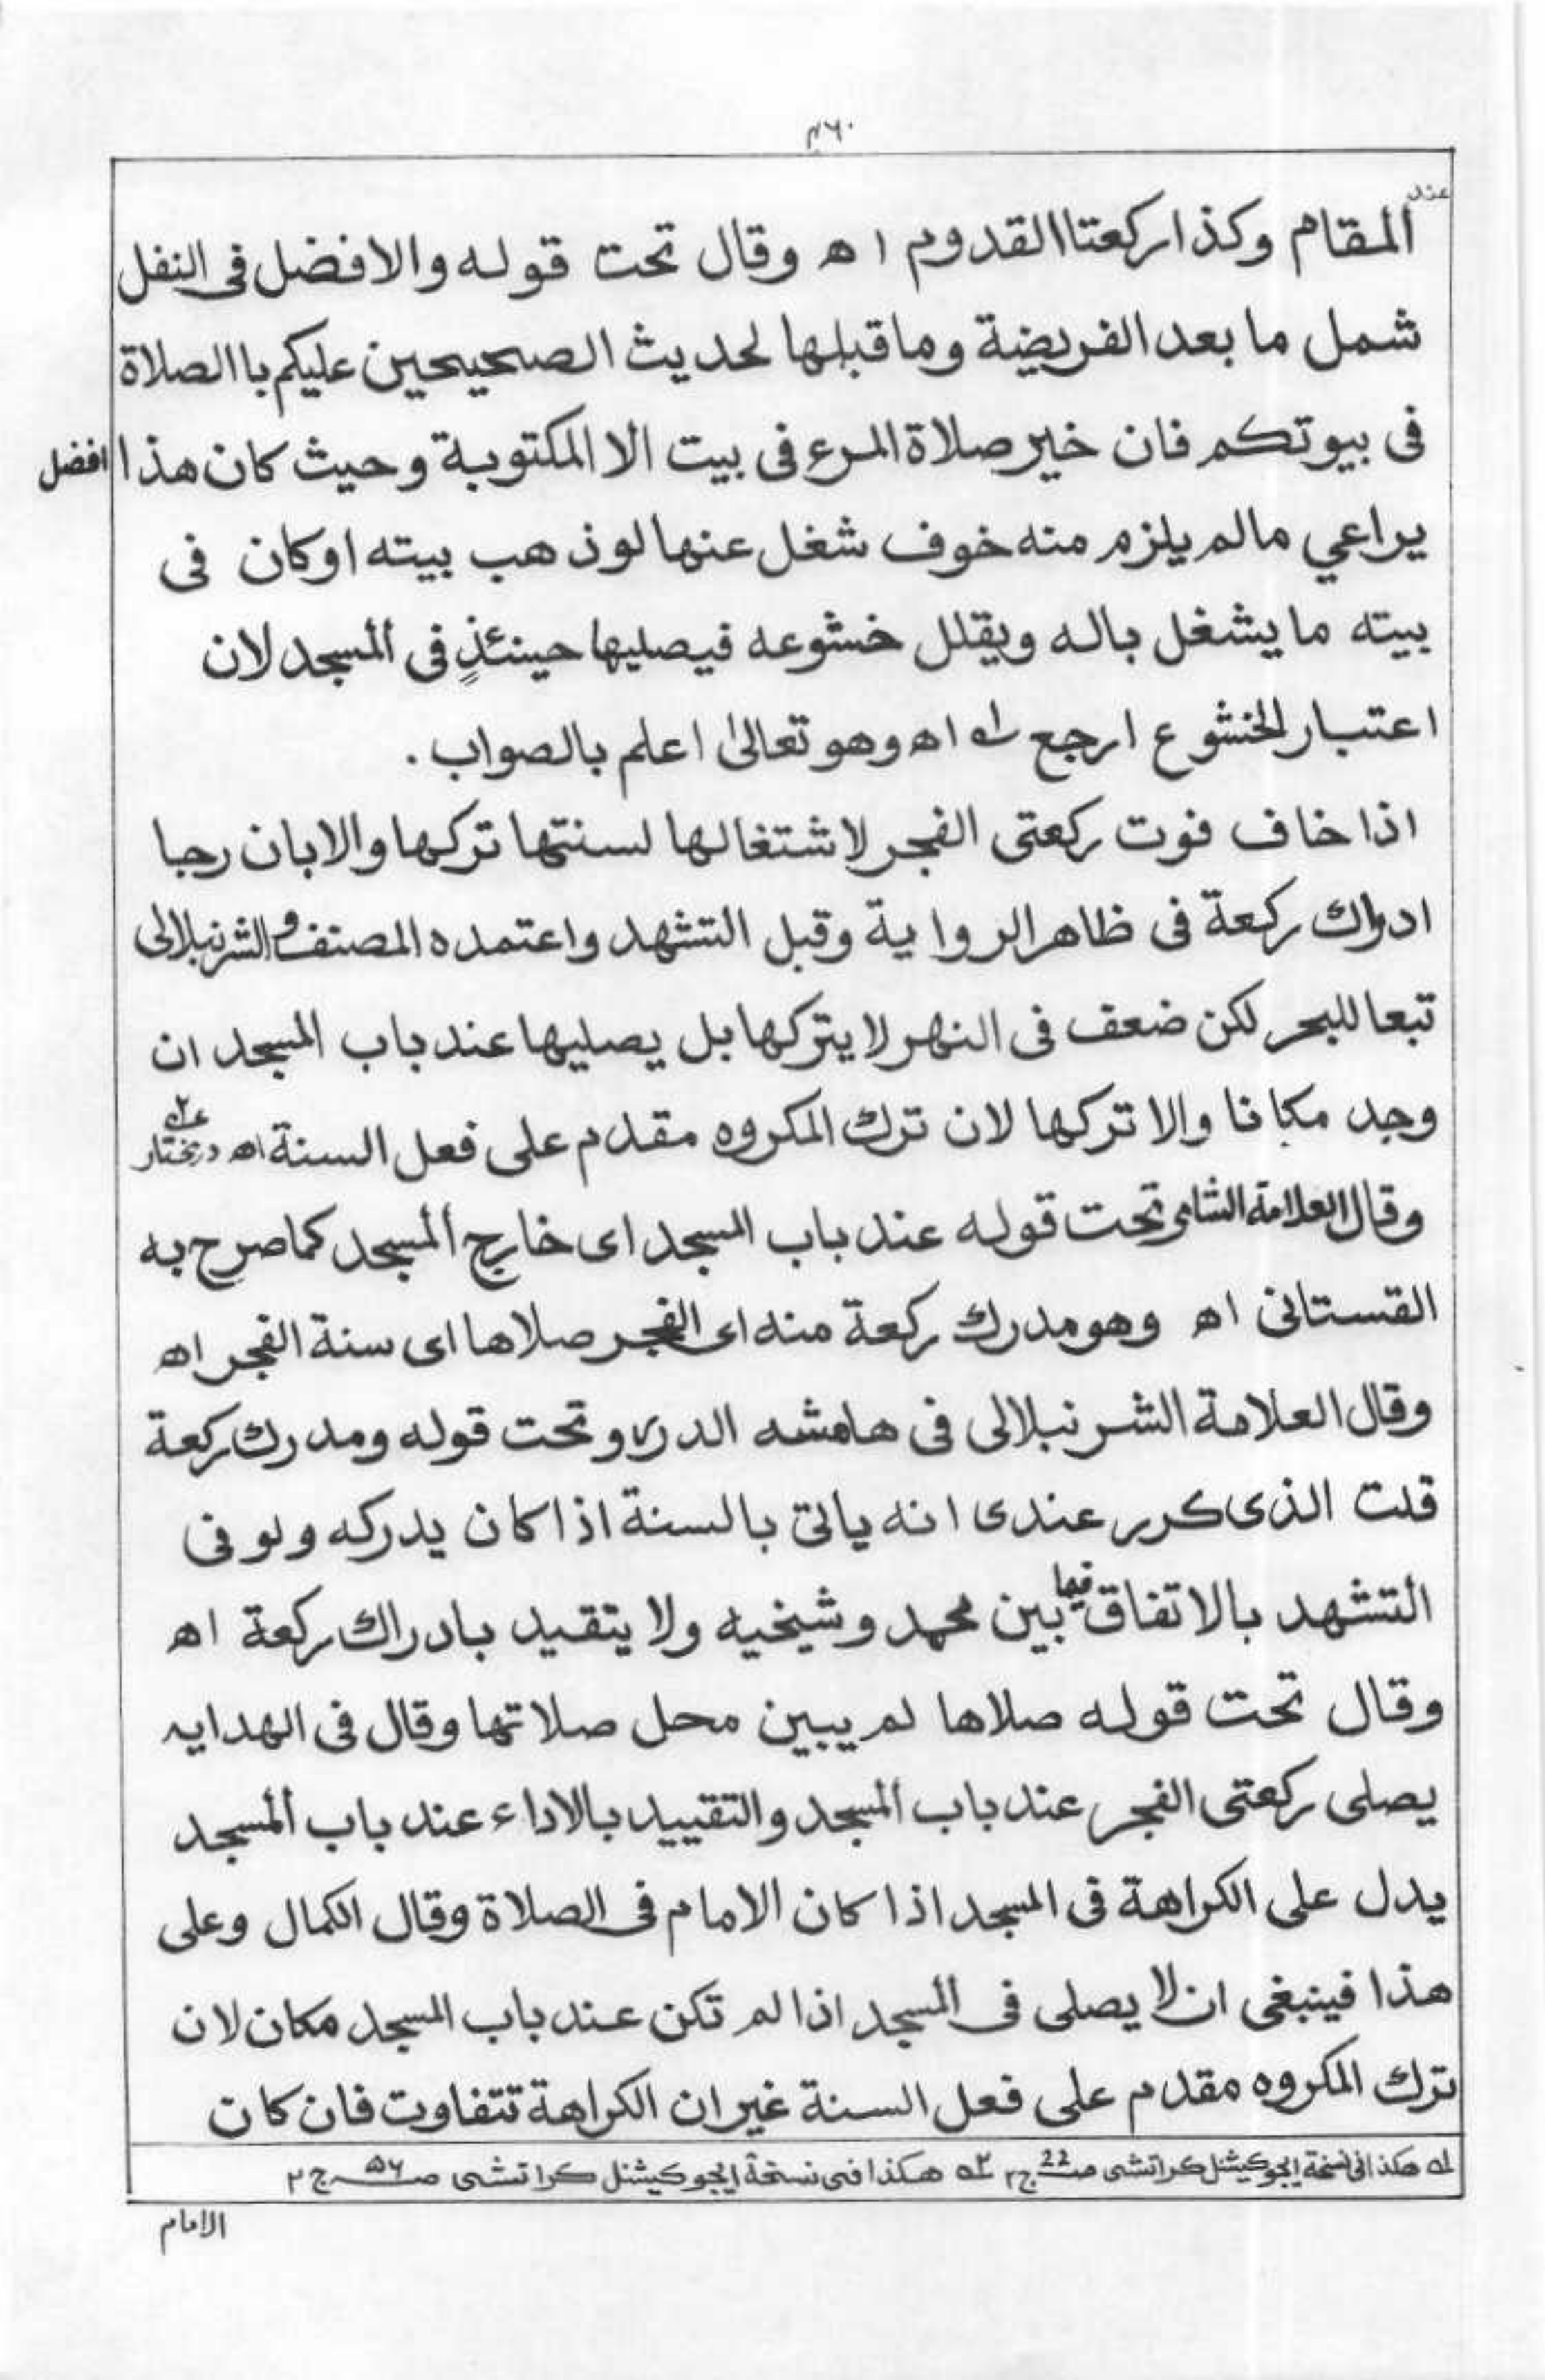 ٤٦٠
عند المقام وكذا ركعتا القدوم ا ه وقال تحت قوله والافضل فى النفل
شمل ما بعد الفريضة وما قبلها لحديث الصحيحين عليكم باالصلاة
فى بيوتكم فان خير صلاة المرء فى بيت الا المكتوبة وحيث كان هذا افضل
يراعي مالم يلزم منه خوف شغل عنها لو ذهب بيته اوكان فى
بيته ما يشغل باله ويقلل خشوعه فيصليها حينئذٍ فى المسجد لان
اعتبار الخشوع ارجع له ا ه وهو تعالىٰ اعلم بالصواب .
اذا خاف فوت ركعتى الفجر لاشتغالها لسنتها تركها والا بان رجا
ادراك ركعة فى ظاهر الرواية وقبل التشهد واعتمده المصنف والشرنبلالى
تبعا للبحر لكن ضعف فى النهر لا يتركها بل يصليها عند باب المسجد ان
وجد مكانا والا تركها لان ترك المكروه مقدم على فعل السنة اه درمختار
وقال العلامة الشامى تحت قوله عند باب المسجد اى خارج المسجد كما صرح به
القستانى اه وهو مدرك ركعة منه اى الفجر صلاها اى سنة الفجر اه
وقال العلامة الشرنبلالى فى هامشه الدرر و تحت قوله ومدرك ركعة
قلت الذى كرر عندى انه ياتى بالسنة اذا كان يدركه ولو فى
التشهد بالاتفاق فيما بين محمد وشيخيه ولا يتقيد بادراك ركعة اه
وقال تحت قوله صلاها لم يبين محل صلاتها وقال فى الهدايه
يصلى ركعتى الفجر عند باب المسجد والتقييد بالاداء عند باب المسجد
يدل على الكراهة فى المسجد اذا كان الامام فى الصلاة وقال الكمال وعلى
هذا فينبغى ان لا يصلى فى المسجد اذا لم تكن عند باب المسجد مكان لان
ترك المكروه مقدم على فعل السنة غير ان الكراهة تتفاوت فان كان
له هكذا فى نسخة ايجوكيشنل كراتشى صـ22 ج٢ ٢ه هكذا فى نسخة ايجوكيشنل كراتشى صـ٥٦ ج٢
الامام